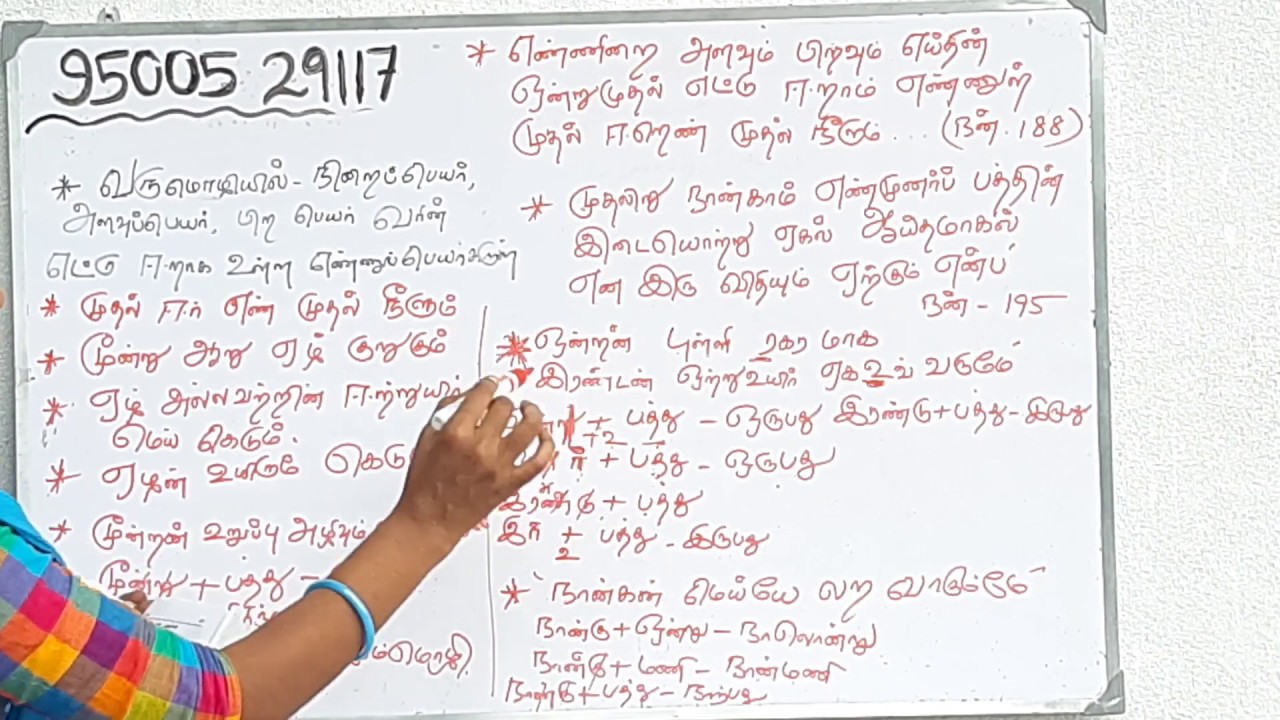 95005 29117
* வருமொழியில் - நிறைப்பெயர்,
அளவுப்பெயர், பிற பெயர் வரின்
எட்டு ஈறாக உள்ள எண்ணுப்பெயர்களுள்
* முதல் ஈர் எண் முதல் நீளும்
* மூன்று ஆறு ஏழ் குறுகும்
* ஏழ் அல்லவற்றின் ஈற்றுயிர்
மெய் கெடும்.
* ஏழன் உயிரும் கெடு
* மூன்றன் உறுப்பு அழிவும்
மூன்று + பத்து -
* எண்ணிறை அளவும் பிறவும் எய்தின்
ஒன்றுமுதல் எட்டு ஈறாம் எண்ணுள்
முதல் ஈரெண் முதல் நீளும் ... (நன். 188)
* முதலிரு நான்காம் எண்முனர்ப் பத்தின்
இடையொற்று ஏகல் ஆய்தமாகல்
என இரு விதியும் ஏற்கும் என்ப
நன் - 195
* ஒன்றன் புள்ளி ரகர மாக
இரண்டன் ஒற்றுஉயிர் ஏகஉவ் வருமே
+ பத்து - ஒருபது இரண்டு+பத்து-இருபது
+உ
+ பத்து - ஒருபது
இரண்டு + பத்து
இர் + பத்து - இருபது
உ
* நான்கன் மெய்யே லற வாகும்மே
நான்கு+ஒன்று - நாலொன்று
நான்கு+மணி - நான்மணி
நான்கு+பத்து - நாற்பது